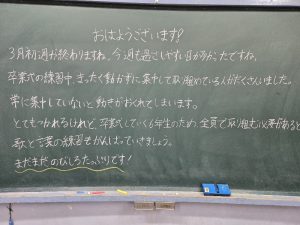 おはようございます!
3月初週が終わりますね。今週も過ごしやすい日が多かったですね。
卒業式の練習中、まったく動かずに集中して取り組めている人がたくさんいました。
常に集中していないと動きがおくれてしまいます。
とてもつかれるけれど、卒業していく6年生のため、全員で取り組む必要があると
歌と言葉の練習もがんばっていきましょう。
まだまだのびしろたっぷりです!